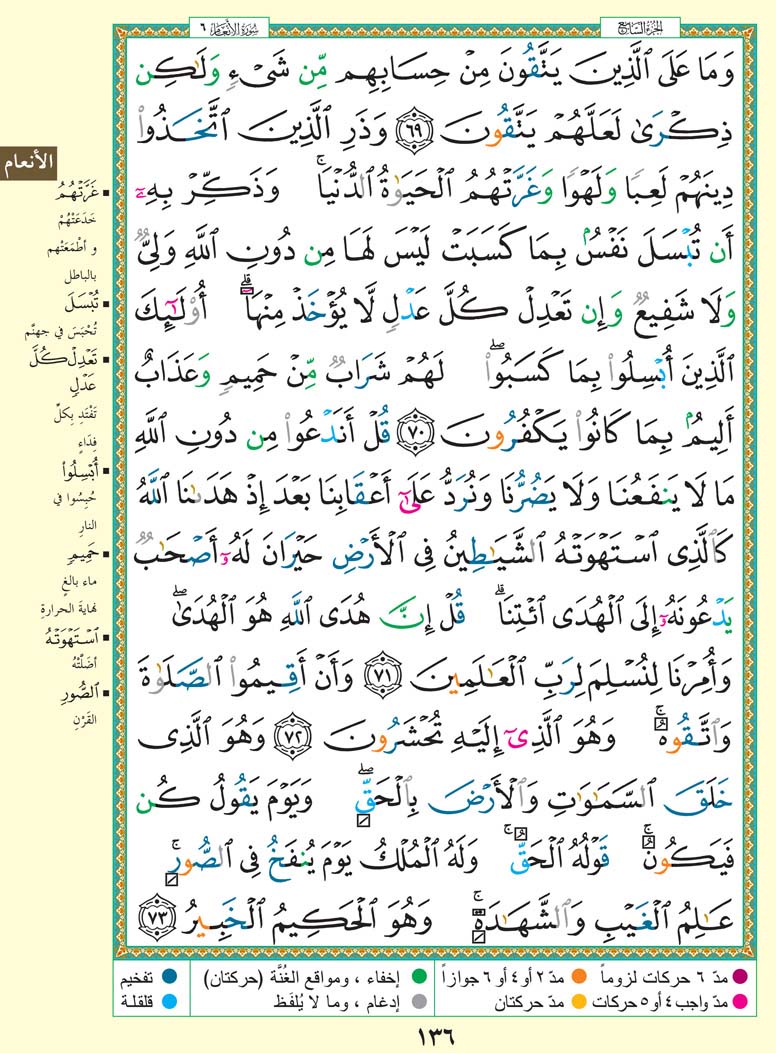 سُورَةُ الأَنْعَام ٦
الجُزْءُ السَّابِعُ
وَمَا عَلَى ٱلَّذِينَ يَتَّقُونَ مِنْ حِسَابِهِم مِّن شَىْءٍ وَلَٰكِن
ذِكْرَىٰ لَعَلَّهُمْ يَتَّقُونَ ٦٩ وَذَرِ ٱلَّذِينَ ٱتَّخَذُوا۟
دِينَهُمْ لَعِبًا وَلَهْوًا وَغَرَّتْهُمُ ٱلْحَيَوٰةُ ٱلدُّنْيَا ۚ وَذَكِّرْ بِهِۦٓ
أَن تُبْسَلَ نَفْسٌۢ بِمَا كَسَبَتْ لَيْسَ لَهَا مِن دُونِ ٱللَّهِ وَلِىٌّ
وَلَا شَفِيعٌ وَإِن تَعْدِلْ كُلَّ عَدْلٍ لَّا يُؤْخَذْ مِنْهَآ ۗ أُو۟لَٰٓئِكَ
ٱلَّذِينَ أُبْسِلُوا۟ بِمَا كَسَبُوا۟ ۖ لَهُمْ شَرَابٌ مِّنْ حَمِيمٍ وَعَذَابٌ
أَلِيمٌۢ بِمَا كَانُوا۟ يَكْفُرُونَ ٧٠ قُلْ أَنَدْعُوا۟ مِن دُونِ ٱللَّهِ
مَا لَا يَنفَعُنَا وَلَا يَضُرُّنَا وَنُرَدُّ عَلَىٰٓ أَعْقَابِنَا بَعْدَ إِذْ هَدَىٰنَا ٱللَّهُ
كَٱلَّذِى ٱسْتَهْوَتْهُ ٱلشَّيَٰطِينُ فِى ٱلْأَرْضِ حَيْرَانَ لَهُۥٓ أَصْحَٰبٌ
يَدْعُونَهُۥٓ إِلَى ٱلْهُدَى ٱئْتِنَا ۗ قُلْ إِنَّ هُدَى ٱللَّهِ هُوَ ٱلْهُدَىٰ ۖ
وَأُمِرْنَا لِنُسْلِمَ لِرَبِّ ٱلْعَٰلَمِينَ ٧١ وَأَنْ أَقِيمُوا۟ ٱلصَّلَوٰةَ
وَٱتَّقُوهُ ۚ وَهُوَ ٱلَّذِىٓ إِلَيْهِ تُحْشَرُونَ ٧٢ وَهُوَ ٱلَّذِى
خَلَقَ ٱلسَّمَٰوَٰتِ وَٱلْأَرْضَ بِٱلْحَقِّ ۖ وَيَوْمَ يَقُولُ كُن
فَيَكُونُ ۚ قَوْلُهُ ٱلْحَقُّ ۚ وَلَهُ ٱلْمُلْكُ يَوْمَ يُنفَخُ فِى ٱلصُّورِ ۚ
عَٰلِمُ ٱلْغَيْبِ وَٱلشَّهَٰدَةِ ۚ وَهُوَ ٱلْحَكِيمُ ٱلْخَبِيرُ ٧٣
الأنعام
غَرَّتْهُمُ
خَدَعَتْهُمْ
و أطْمَعَتْهم
بالباطل
تُبْسَلَ
تُحْبَسَ في جهنّم
تَعْدِلْ كُلَّ
عَدْلٍ
تَفْتَدِ بِكلِّ
فِدَاءٍ
أُبْسِلُوا۟
حُبِسُوا في
النارِ
حَمِيمٍ
ماء بالغٍ
نهايةَ الحرارةِ
ٱسْتَهْوَتْهُ
أضَلَّتْهُ
ٱلصُّورِ
القَرْنِ
مدّ ٦ حركات لزوماً
مدّ ٢ أو ٤ أو ٦ جوازاً
إخفاء ، ومواقع الغُنَّة (حركتان)
تفخيم
مدّ واجب ٤ أو ٥ حركات
مدّ حركتان
إدغام ، وما لا يُلفَظ
قلقلة
١٣٦